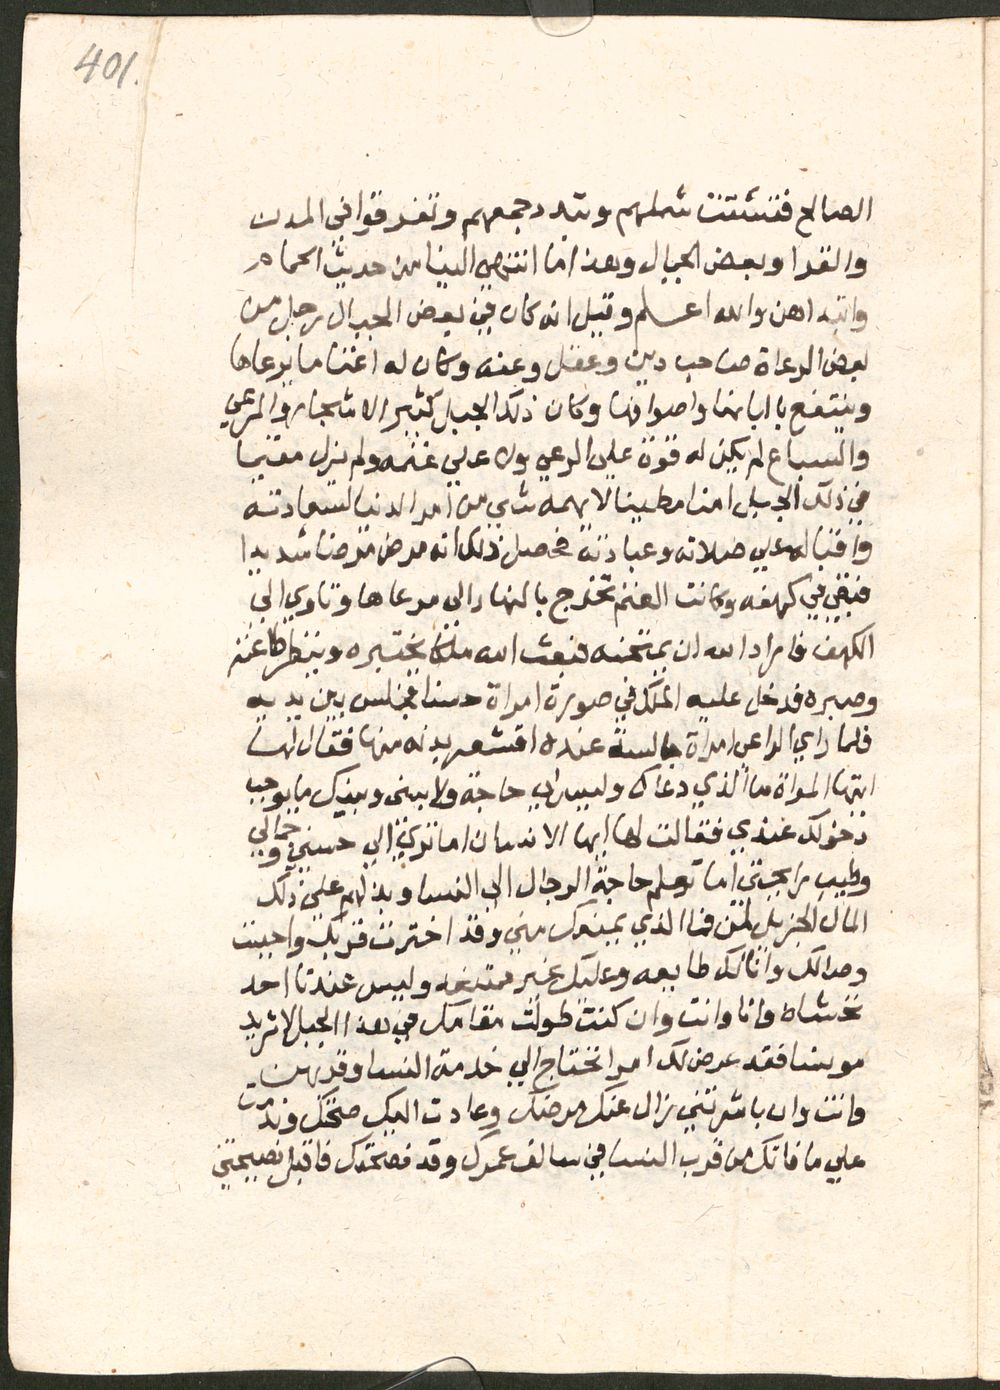 401.
الصالح فتشتت شملهم وتبدد جمعهم وتفرقوا في المدن
والقرا وبعض الجبال وهذا ما انتهي الينا من حديث الحمام
والله اعلم وقيل انه كان في بعض الجبال رجل من
بعض الرعاة صاحب دين وعقل وعفه وكان له اغناما يرعاها
وينتفع بالبانها واصوافها وكان ذلك الجبل كثير الاشجار والمرعي
والسباع لم يكن له قوة علي الراعي ولا علي غنمه ولم يزل مقيما
في ذلك الجبل امنا مطمينا لا يهمه شي من امر الدنيا لسعادته
واقباله علي صلاته وعبادته فحصل ذلك انه مرض مرضا شديدا
فبقي في كهفه وكانت الغنم تخرج بالنهار الي مرعاها وتاوي الي
الكهف فاراد الله ان يمتحنه فبعث الله ملكا يختبره وينظر طاعته
وصبره فدخل عليه الملك في صورة امراة حسنا فجلس بين يديه
فلما راي الراعي امراة جالسة عنده اقشعر بدنه منها فقال لها
ايتها المراة ما الذي دعاك وليس لي حاجة ولا بيني وبينك ما يوجب
دخولك عندي فقالت لها ايها الانسان اما تري الي حسني وجمالي
وطيب رايحتي اما تعلم حاجة الرجال الي النسا وبذلهم علي ذلك
المال الجزيل لهن فما الذي يمنعك مني وقد اخترت قربك واحببت
وصالك وانا لك طايعه وعليك غير ممتنعه وليس عندنا احد
نخشاه وانا وانت وان كنت طولت مقامك في هذا الجبل لا تريد
مونسا فقد عرض لك امرا تحتاج الي خدمة النسا وقربهن
وانت وان باشرتني زال عنك مرضك وعادت اليك صحتك وندمت
علي ما فاتك من قرب النسا في سالف عمرك وقد نصحتك فاقبل نصيحتي